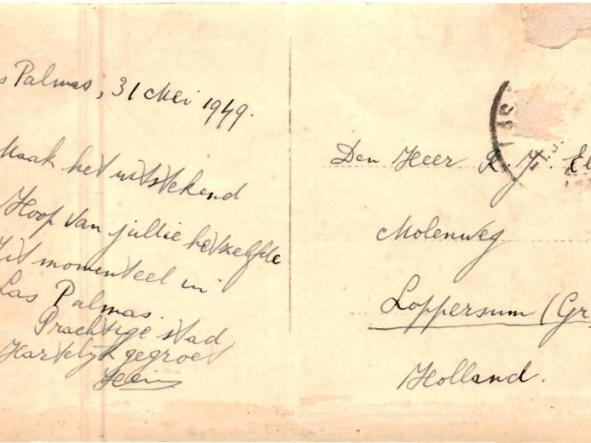 s Palmas, 31 Mei 1949.
Maak het uitstekend
Hoop van jullie hetzelfde
Zit momenteel in
Las Palmas.
Prachtige stad
Hartelijk gegroet
Hein
Den Heer R. J. El
Molenweg
Loppersum (Gr
Holland.